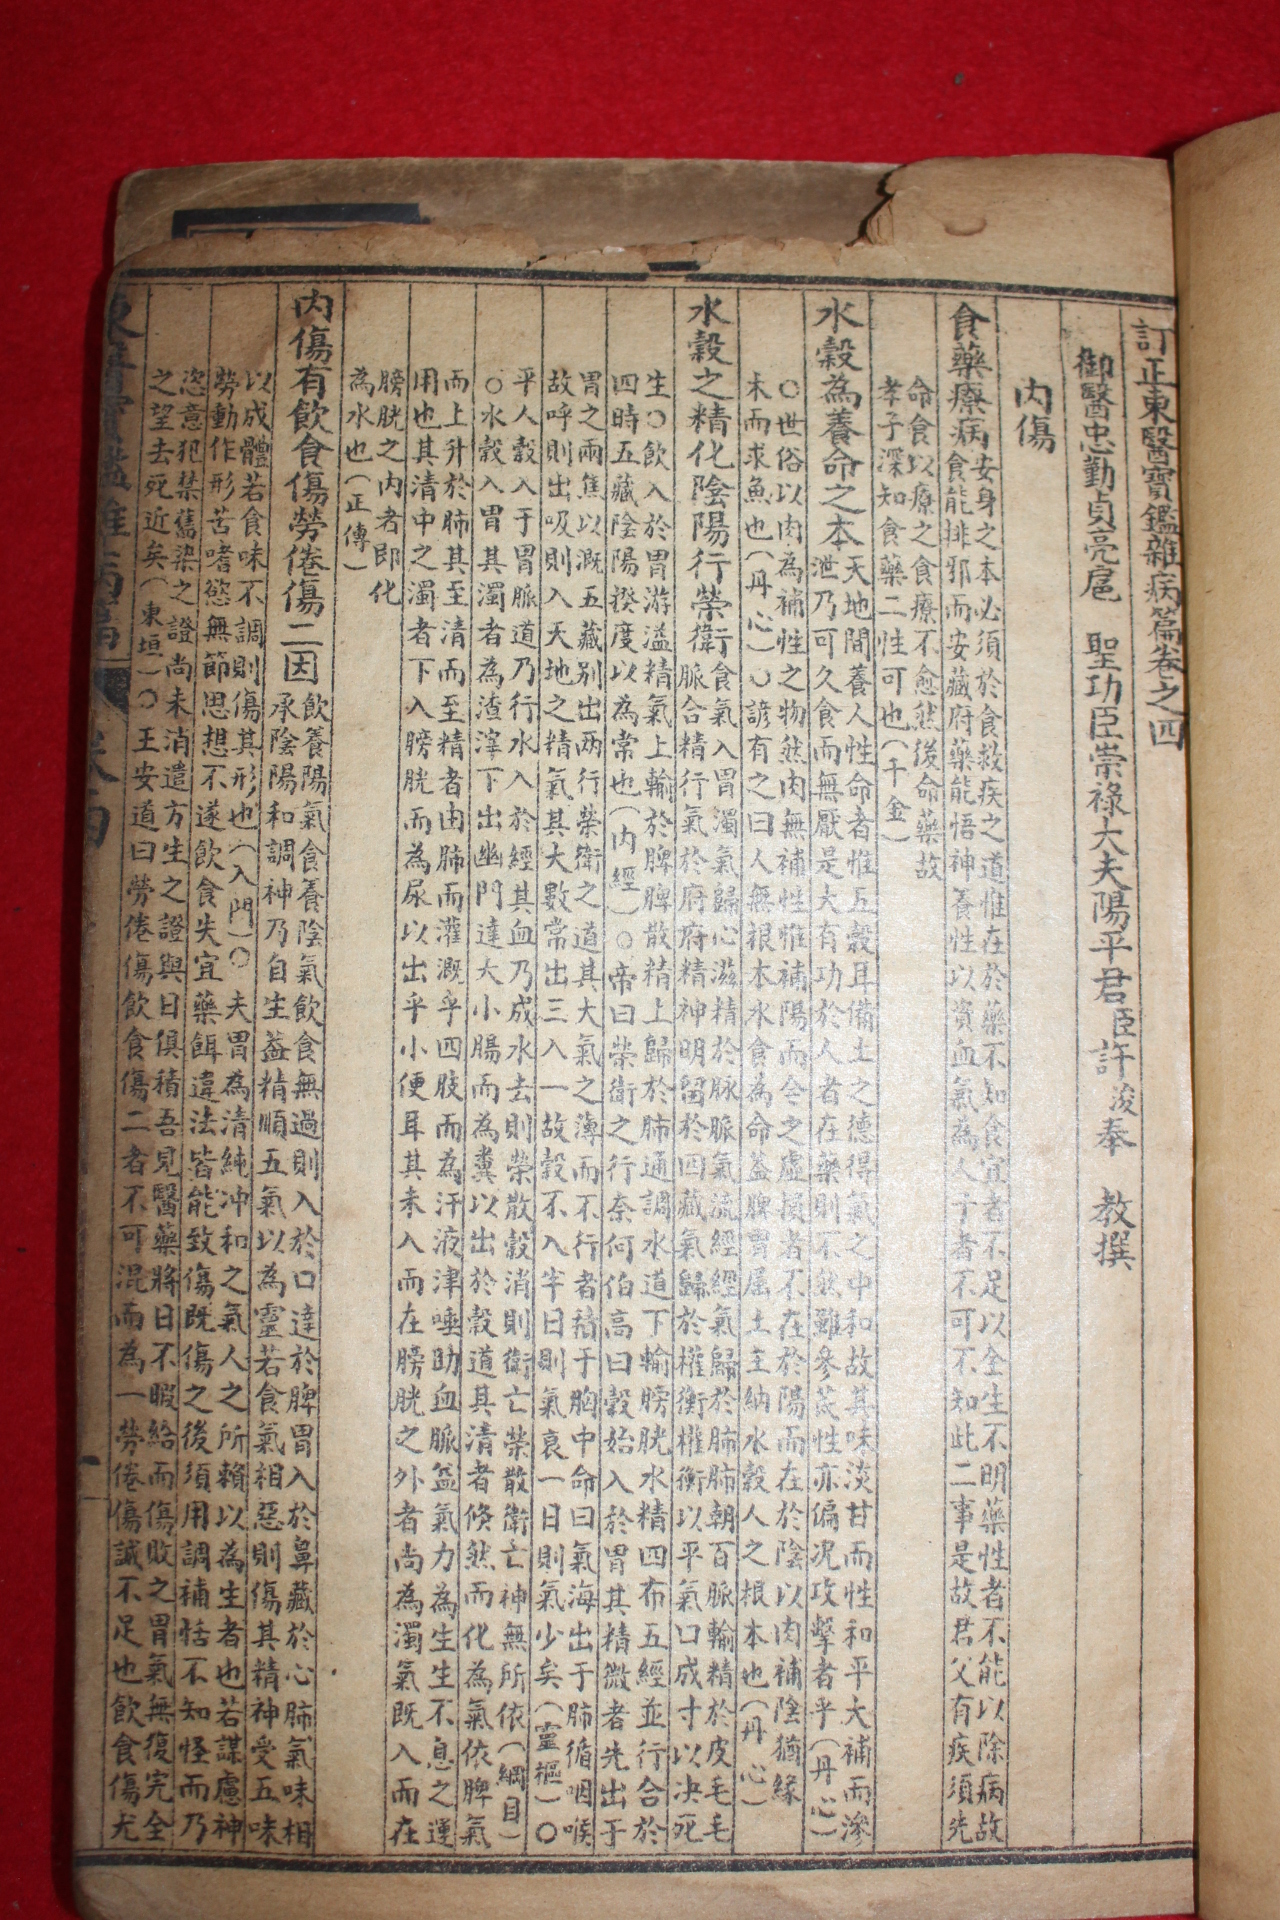 訂正東醫寶鑑雜病篇卷之四
御醫忠勤貞亮扈 聖功臣崇祿大夫陽平君臣許浚奉 教撰
內傷
食藥療病
安身之本必須於食救疾之道惟在於藥不知食宜者不足以全生不明藥性者不能以除病故
食能排邪而安藏府藥能恬神養性以資血氣為人子者不可不知此二事是故君父有疾須先
命食以療之食療不愈然後命藥故
孝子深知食藥二性可也(千金)
水穀為養命之本
天地間養人性命者惟五穀耳備土之德得氣之中和故其味淡甘而性和平大補而滲
泄乃可久食而無厭是大有功於人者在藥則不然雖參芪性亦偏况攻擊者乎(丹心)
○世俗以肉為補性之物然肉無補性惟補陽而今之虛損者不在於陽而在於陰以肉補陰猶緣
木而求魚也(丹心)○諺有之曰人無根本水食為命盖脾胃屬土主納水穀人之根本也(丹心)
水穀之精化陰陽行榮衛
食氣入胃濁氣歸心滋精於脉脈氣流經經氣歸於肺肺朝百脈輸精於皮毛毛
脈合精行氣於府府精神明留於四藏氣歸於權衡權衡以平氣口成寸以决死
生○飮入於胃游溢精氣上輸於脾脾散精上歸於肺通調水道下輸膀胱水精四布五經並行合於
四時五藏陰陽揆度以為常也(內經)○帝曰榮衛之行奈何伯高曰穀始入於胃其精微者先出于
胃之兩焦以溉五藏別出两行榮衛之道其大氣之溥而不行者積于胸中命曰氣海出于肺循咽喉
故呼則出吸則入天地之精氣其大數常出三入一故穀不入半日則氣衰一日則氣少矣(靈樞)○
平人穀入于胃脈道乃行水入於經其血乃成水去則榮散穀消則衛亡榮散衛亡神無所依(綱目)
○水穀入胃其濁者為渣滓下出幽門達大小腸而為糞以出於穀道其清者倐然而化為氣依脾氣
而上升於肺其至清而至精者由肺而灌溉乎四肢而為汗液津唾助血脈益氣力為生生不息之運
用也其清中之濁者下入膀胱而為尿以出乎小便耳其未入而在膀胱之外者尚為濁氣既入而在
膀胱之內者即化
為水也(正傳)
內傷有飮食傷勞倦傷二因
飮養陽氣食養陰氣飮食無過則入於口達於脾胃入於鼻藏於心肺氣味相
承陰陽和調神乃自生盖精順五氣以為靈若食氣相惡則傷其精神受五味
以成體若食味不調則傷其形也(入門)○夫胃為清純冲和之氣人之所賴以為生者也若謀慮神
勞動作形苦嗜慾無節思想不遂飮食失宜藥餌違法皆能致傷既傷之後須用調補恬不知怪而乃
恣意犯禁舊染之證尚未消遣方生之證與日俱積吾見醫藥將日不暇給而傷敗之胃氣無復完全
之望去死近矣(東垣)○王安道曰勞倦傷飮食傷二者不可混而為一勞倦傷誠不足也飮食傷尤
東醫寶鑑雜病篇